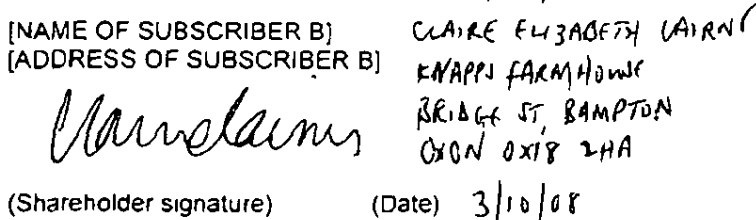 [NAME OF SUBSCRIBER B] CLAIRE ELIZABETH CAIRNS
[ADDRESS OF SUBSCRIBER B] KNAPPS FARMHOUSE
BRIDGE ST, BAMPTON
OXON OX18 2HA
(Shareholder signature) (Date) 3/10/08